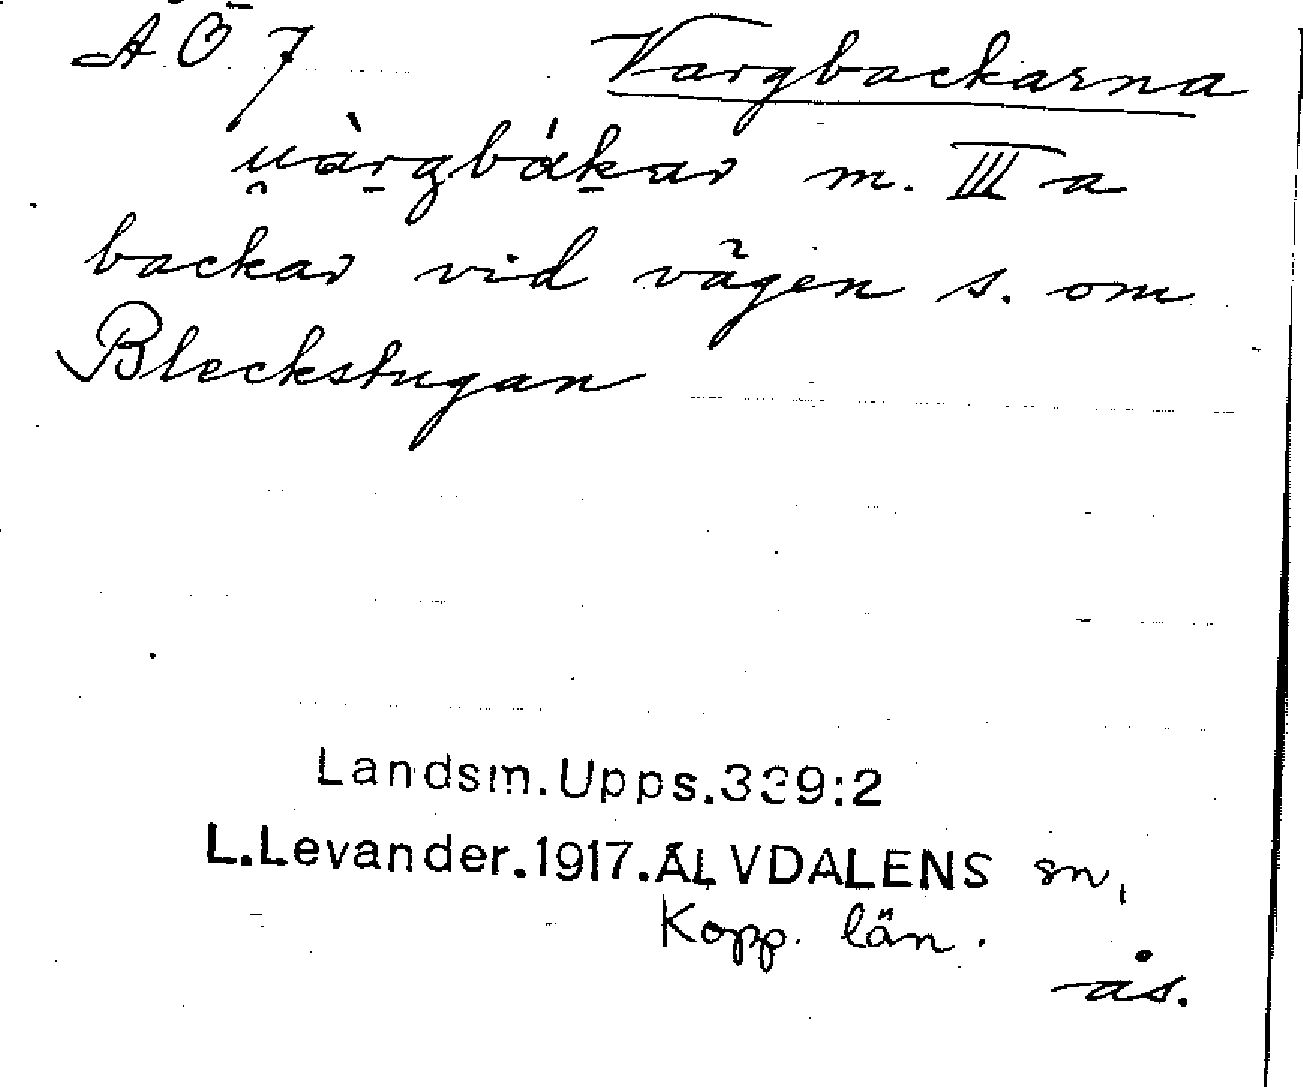 A Ö 7 Vargbackarna
u̯àrgbákar m. III a
backar vid vägen s. om
Bleckstugan
Landsm.Upps.339:2
L.Levander.1917.ÄLVDALENS sn,
Kopp. län.
ås.